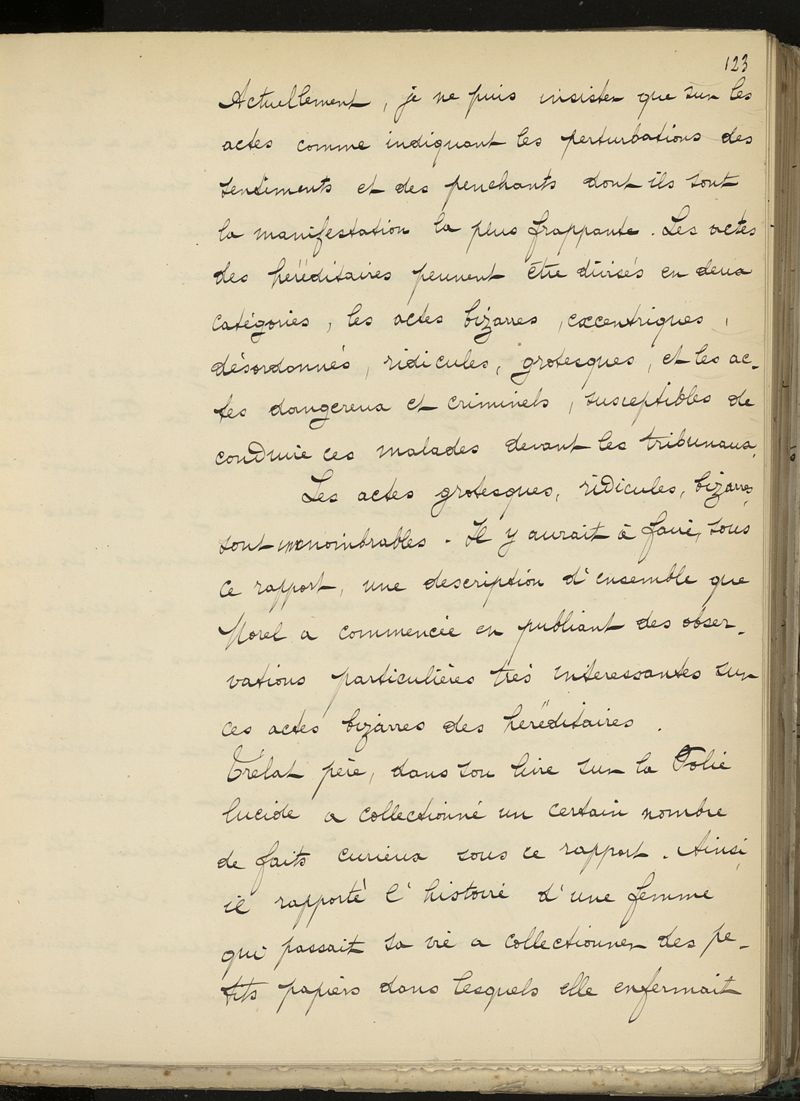 123
Actuellement, je ne puis insister que sur les
actes comme indiquant les perturbations des
sentiments et des penchants dont ils sont
la manifestation la plus frappante. Les actes
des héréditaires peuvent être divisés en deux
catégories, les actes bizarres, excentriques,
désordonnés, ridicules, grotesques, et les ac-
tes dangereux et criminels, susceptibles de
conduire ces malades devant les tribunaux.
Les actes grotesques, ridicules, bizarres,
sont innombrables. Il y aurait à faire, sous
ce rapport, une description d'ensemble que
Morel a commencée en publiant des obser-
vations particulières très intéressantes sur
ces actes bizarres des héréditaires.
Trélat père, dans son livre sur la Folie
lucide a collectionné un certain nombre
de faits curieux sous ce rapport. Ainsi,
il rapporte l'histoire d'une femme
qui passait sa vie a collectionner des pe-
tits papiers dans lesquels elle enfermait